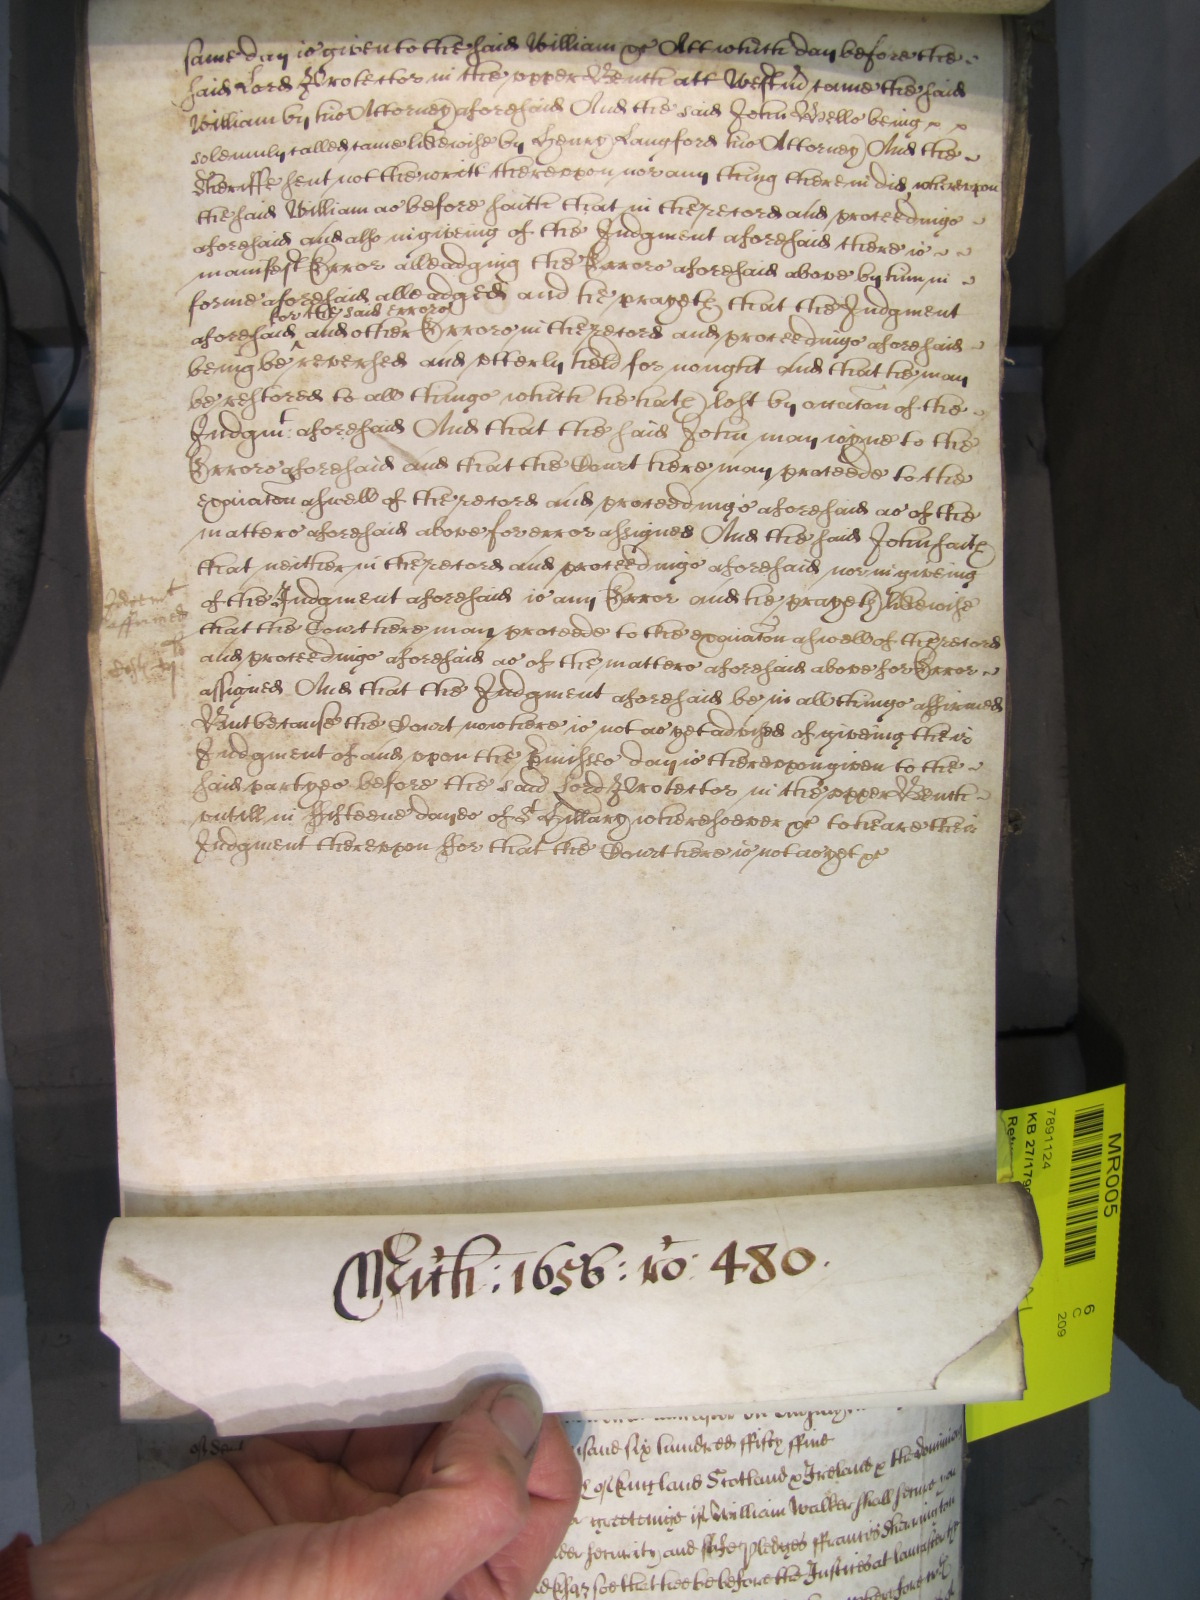 same day is given to the said William &c Att which day before the
said Lord Protector in the upper Bench att Westm̄ came the said
William by his Attorney aforesaid And the said John Wells being
solemnly called came likewise by Henry Langford his Attorney And the
Sheriffe sent not the writt thereupon nor any thing therein did whereupon
the said William as before saith that in the record and proceedings
aforesaid and also in giveing of the Judgment aforesaid there is
manifest Error alleadging the Errors aforesaid above by him in
forme aforesaid alleadged and he prayeth that the Judgment
for the said errors
aforesaid and other Errors in the record and proceedings aforesaid
being be reversed and utterly held for nought and that he may
be restored to all things which he hath lost by occac̄on of the
Judgmt: aforesaid And that the said John may ioyne to the
Errors aforesaid and that the Court here may proceede to the
exaiac̄on aswell of the record and proceedings aforesaid as of the
matters aforesaid above for error assigned And the said John saith
that neither in the record and proceedings aforesaid nor in giveing
of the Judgment aforesaid is any Error and he prayeth likewise
that the Court here may proceede to the exaiac̄on aswell of the record
and proceedings aforesaid as of the matters aforesaid above for Error
assigned And that the Judgment aforesaid be in all things affirmed
But because the Court now here is not as yet advised of giveing their
Judgment of and upon the p̄misses day is thereupon given to the
said partyes before the said Lord Protector in the upper Bench
untill in fifteene dayes of St Hillary wheresoever &c to heare their
Judgment thereupon for that the Court here is not as yet &c
Judgmt
affirmed
Mich: 1656: ro: 480.
MR005
7891124
KB 27/179
6
C
209
sand six hundred ffifty ffive
of England Scotland & Ireland & the dominions
greeteinge if William Walker shall secure you
security and safe pledges ffrancis Sherrington
see that hee be before the Justices at Lancaster